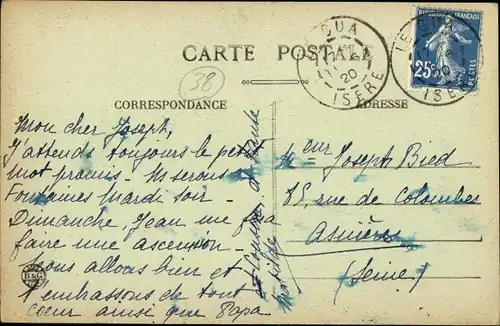 LE GUA
20
ISERE
LE GUA
20
ISERE
25c
POSTES
CARTE POSTALE
38
CORRESPONDANCE
ADRESSE
Mon cher Joseph,
J'attends toujours le petit
mot promis - serons
Fontaines Mardi soir -
Dimanche, Jean me fera
faire une ascension -
Nous allons bien et
t'embrassons de tout
coeur ainsi que Papa
B&G
Joseph Bied
85, rue de Colombes
Asnières
(Seine)